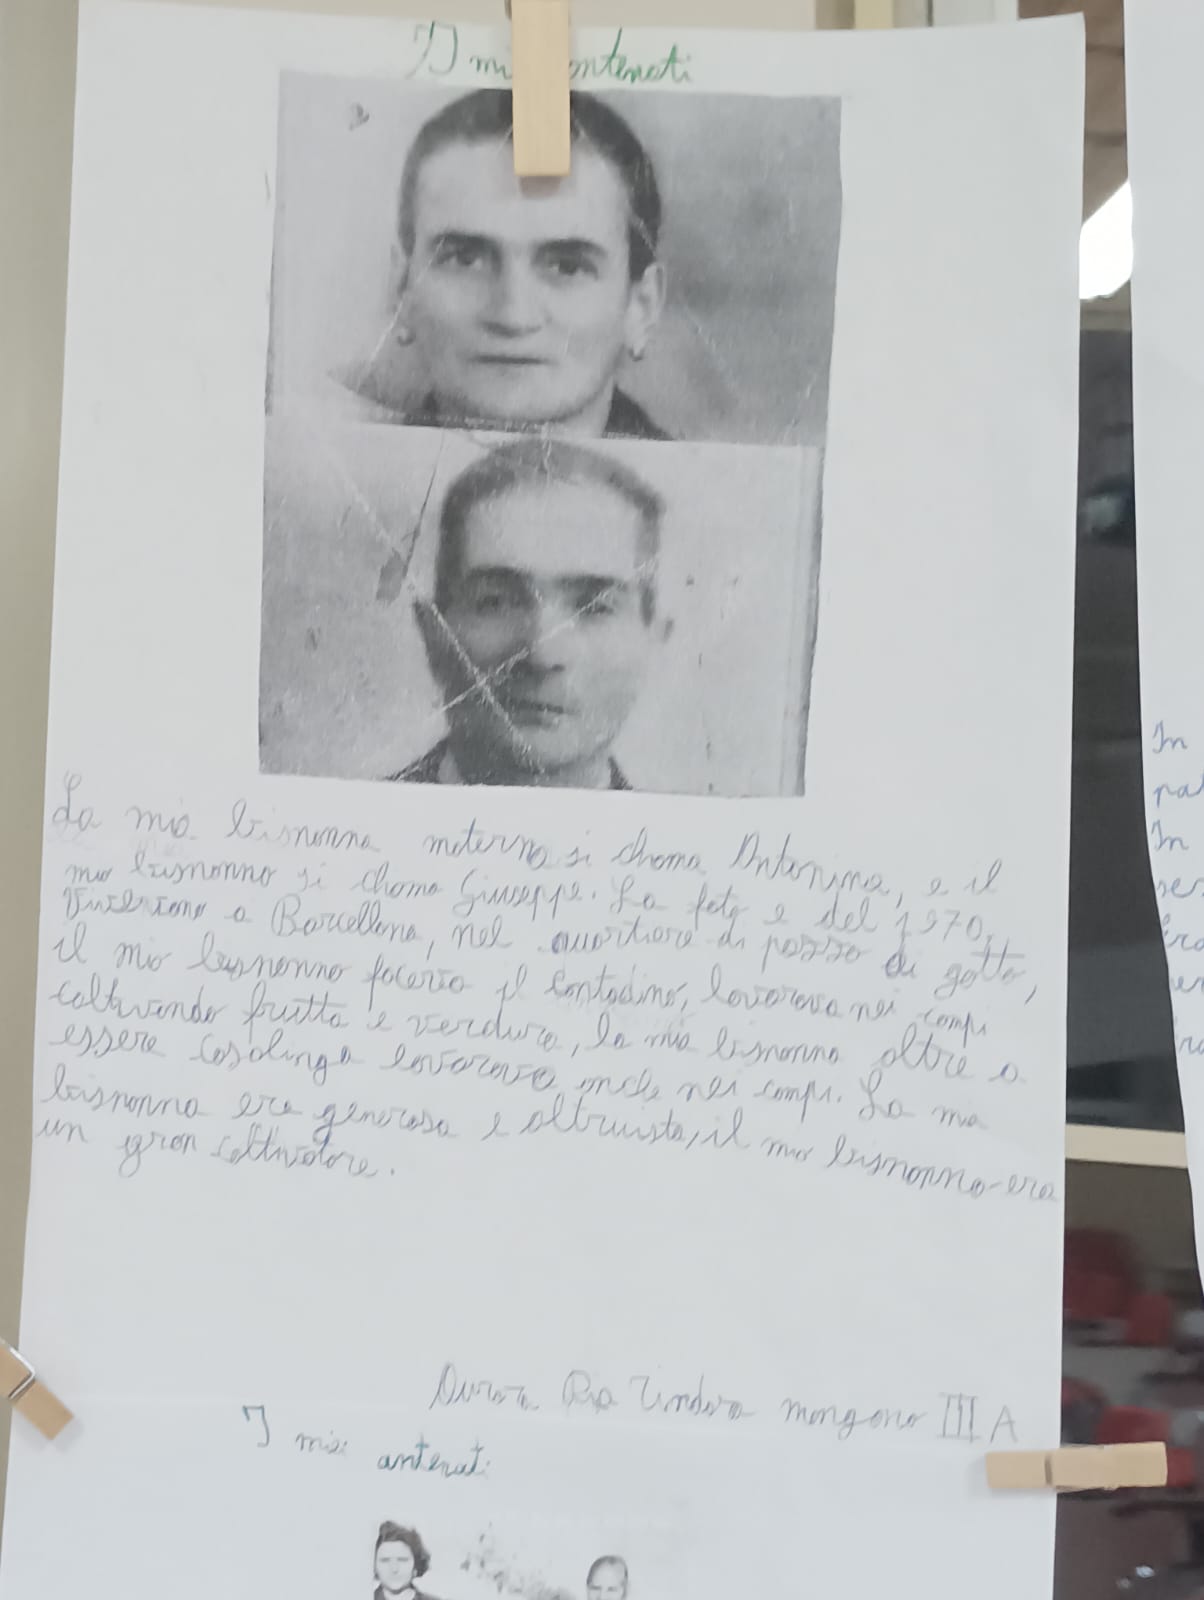 I mi antenati
La mia bisnonna materna si chama Antonina, e il
mio bisnonno si chama Giuseppe. La foto e del 1970,
Vivevano a Barcellona, nel quartiere di pozzo di gotto,
il mio bisnonno faceva il contadino, lavorava nei campi
coltivando frutta e verdura, la mia bisnonna oltre a
essere casalinga lavorava anche nei campi. La mia
bisnonna era generosa e altruista, il mio bisnonno era
un gran coltivatore.
mongano III A
I miei antenati
In
In